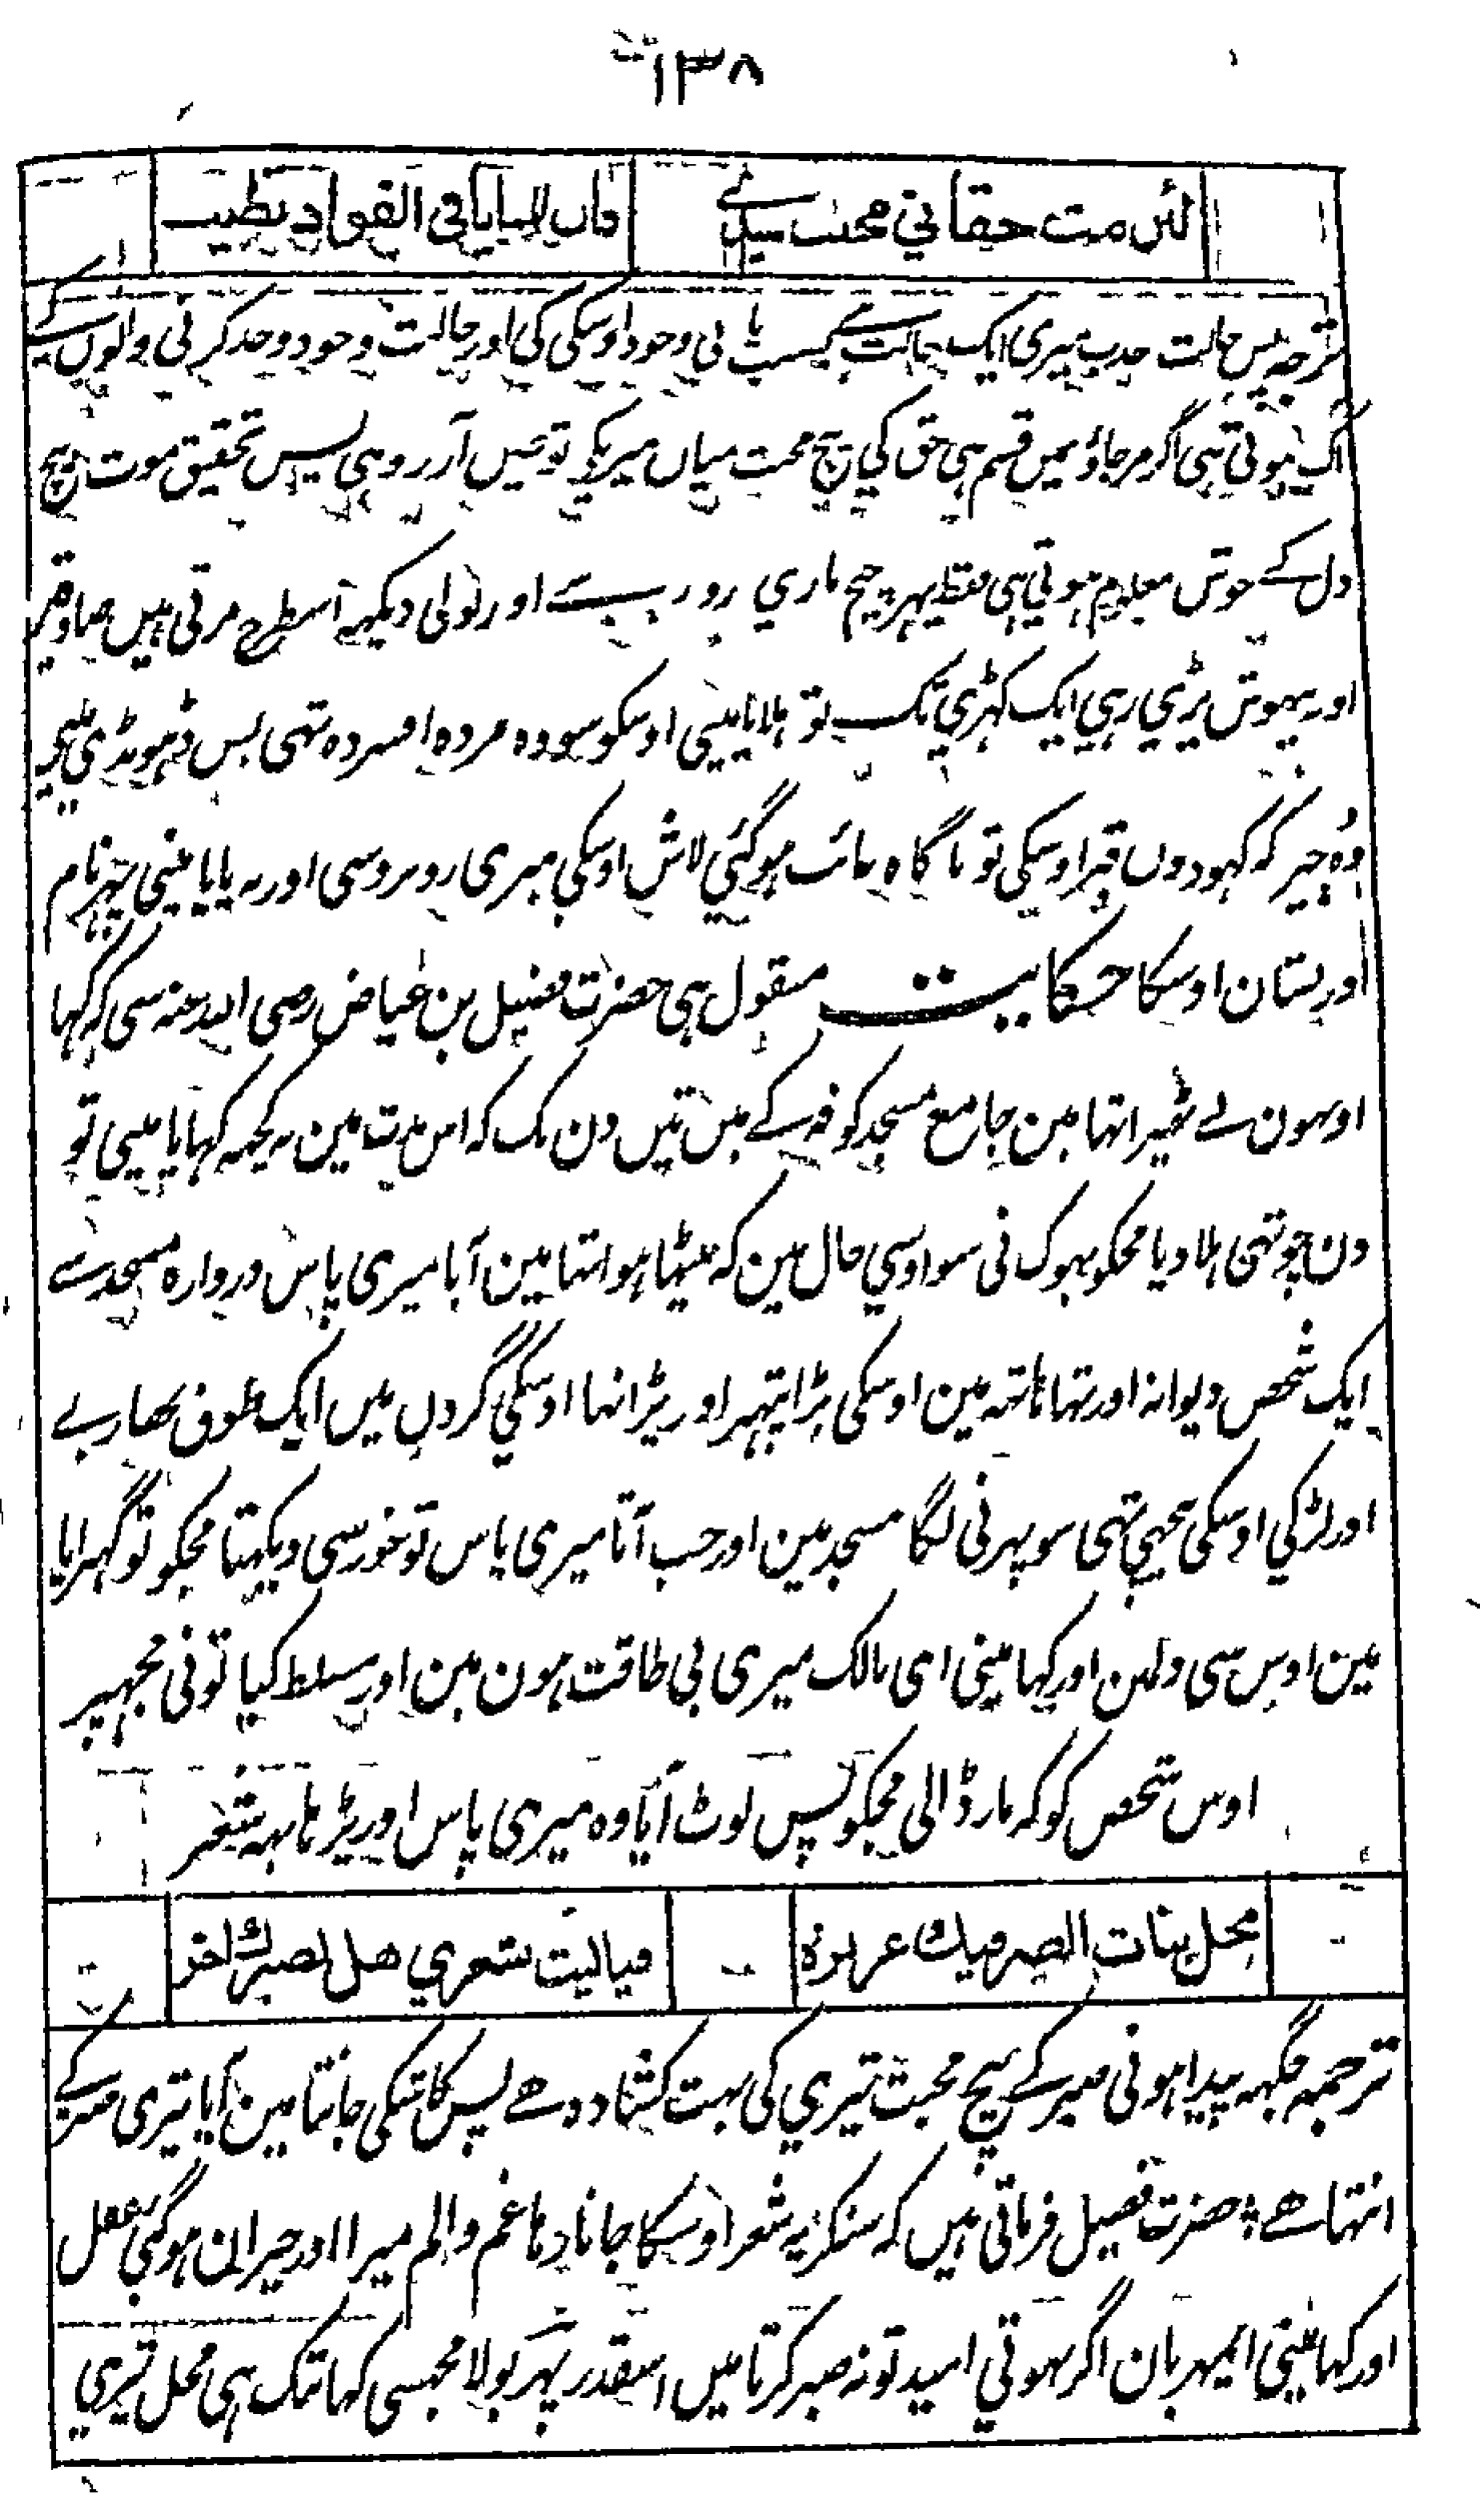 ١٣٨
لئن مت حقا في محبت سيدے فان المنايا في الفواد يطيب
ترجمہ پس حالت جذب میری ایک حالت ہے کسب یا بی وجود اوسکی کی اور حالت وجود وجد کرنی والوں کے
اک ہوتی ہی اگر مرجاؤ میں قسم ہی حق کی بیچ محبت میاں میریکے توعین آرزوہی پس تحقیق موت بیچ
دل کے خوش معلوم ہوتی ہی فقط پھر چیخ ماری زور سے اور بولی دیکھہ اسطرح مرتی ہیں صادق
اور بیہوش پڑی رہی ایک گہڑی تک تو ہلایا مینی اوسکو سو وہ مردہ افسردہ تھی پس ڈہونڈی مینی
وہ چیز کہ کہودوں قبر اوسکی تو ناگاہ غائب ہوگئی لاش اوسکی میری روبروسی اور نہ پایا مینی پہر نام
اور نشان اوسکا حکایت منقول ہی حضرت فضیل بن عیاض رضی اللہ عنہ سی کہ کہا
اونہون نے ٹہیرا تہا مین جامع مسجد کوفہ کے میں تین دن تک کہ اس مدت مین نہ کچھہ کہایا مینی تو
دن چوتھی ہلادیا مجکو بہوک نی سو اوسی حال مین کہ بیٹہا ہوا تہا مین آیا میری پاس دروازہ مسجد سے
ایک شخص دیوانہ اور تہا ہاتھہ مین اوسکی بڑا پتہر اور پڑا تہا اوسکی گردن میں ایک طوق بھارے
اور لڑکی اوسکی پیچھی تھی سو پہرنی لگا مسجد مین اور جب آتا میری پاس تو غور سی دیکہتا مجکو تو گہبرایا
مین اوس سی دلمن اور کہا مینی ای مالک میری بی طاقت ہون مین اور مسلط کیا تونی مجہپر
اوس شخص کو کہ مار ڈالی مجکو پس لوٹ آیا وہ میری پاس اور پڑہا یہہ شعر
محل بنات الصبر فيك عزيزة فياليت شعري هل لصبرك اخر
ترجمہ جگہہ پیدا ہونی صبر کے بیچ محبت تیری کی بہت کشادہ ہے پس کاشکی جانتا مین آیا تیری صبر کے
انتہا ہے؛ حضرت فضیل فرماتی ہیں کہ سنکر یہ شعر اوسکا جاتا رہا غم و الم میرا اور حیران ہوگئی عقل
اور کہا مینی ایمہربان اگر نہوتی امید تو نہ صبر کرتا میں اسقدر پہر بولا مجسی کہا تک ہی محل تیری